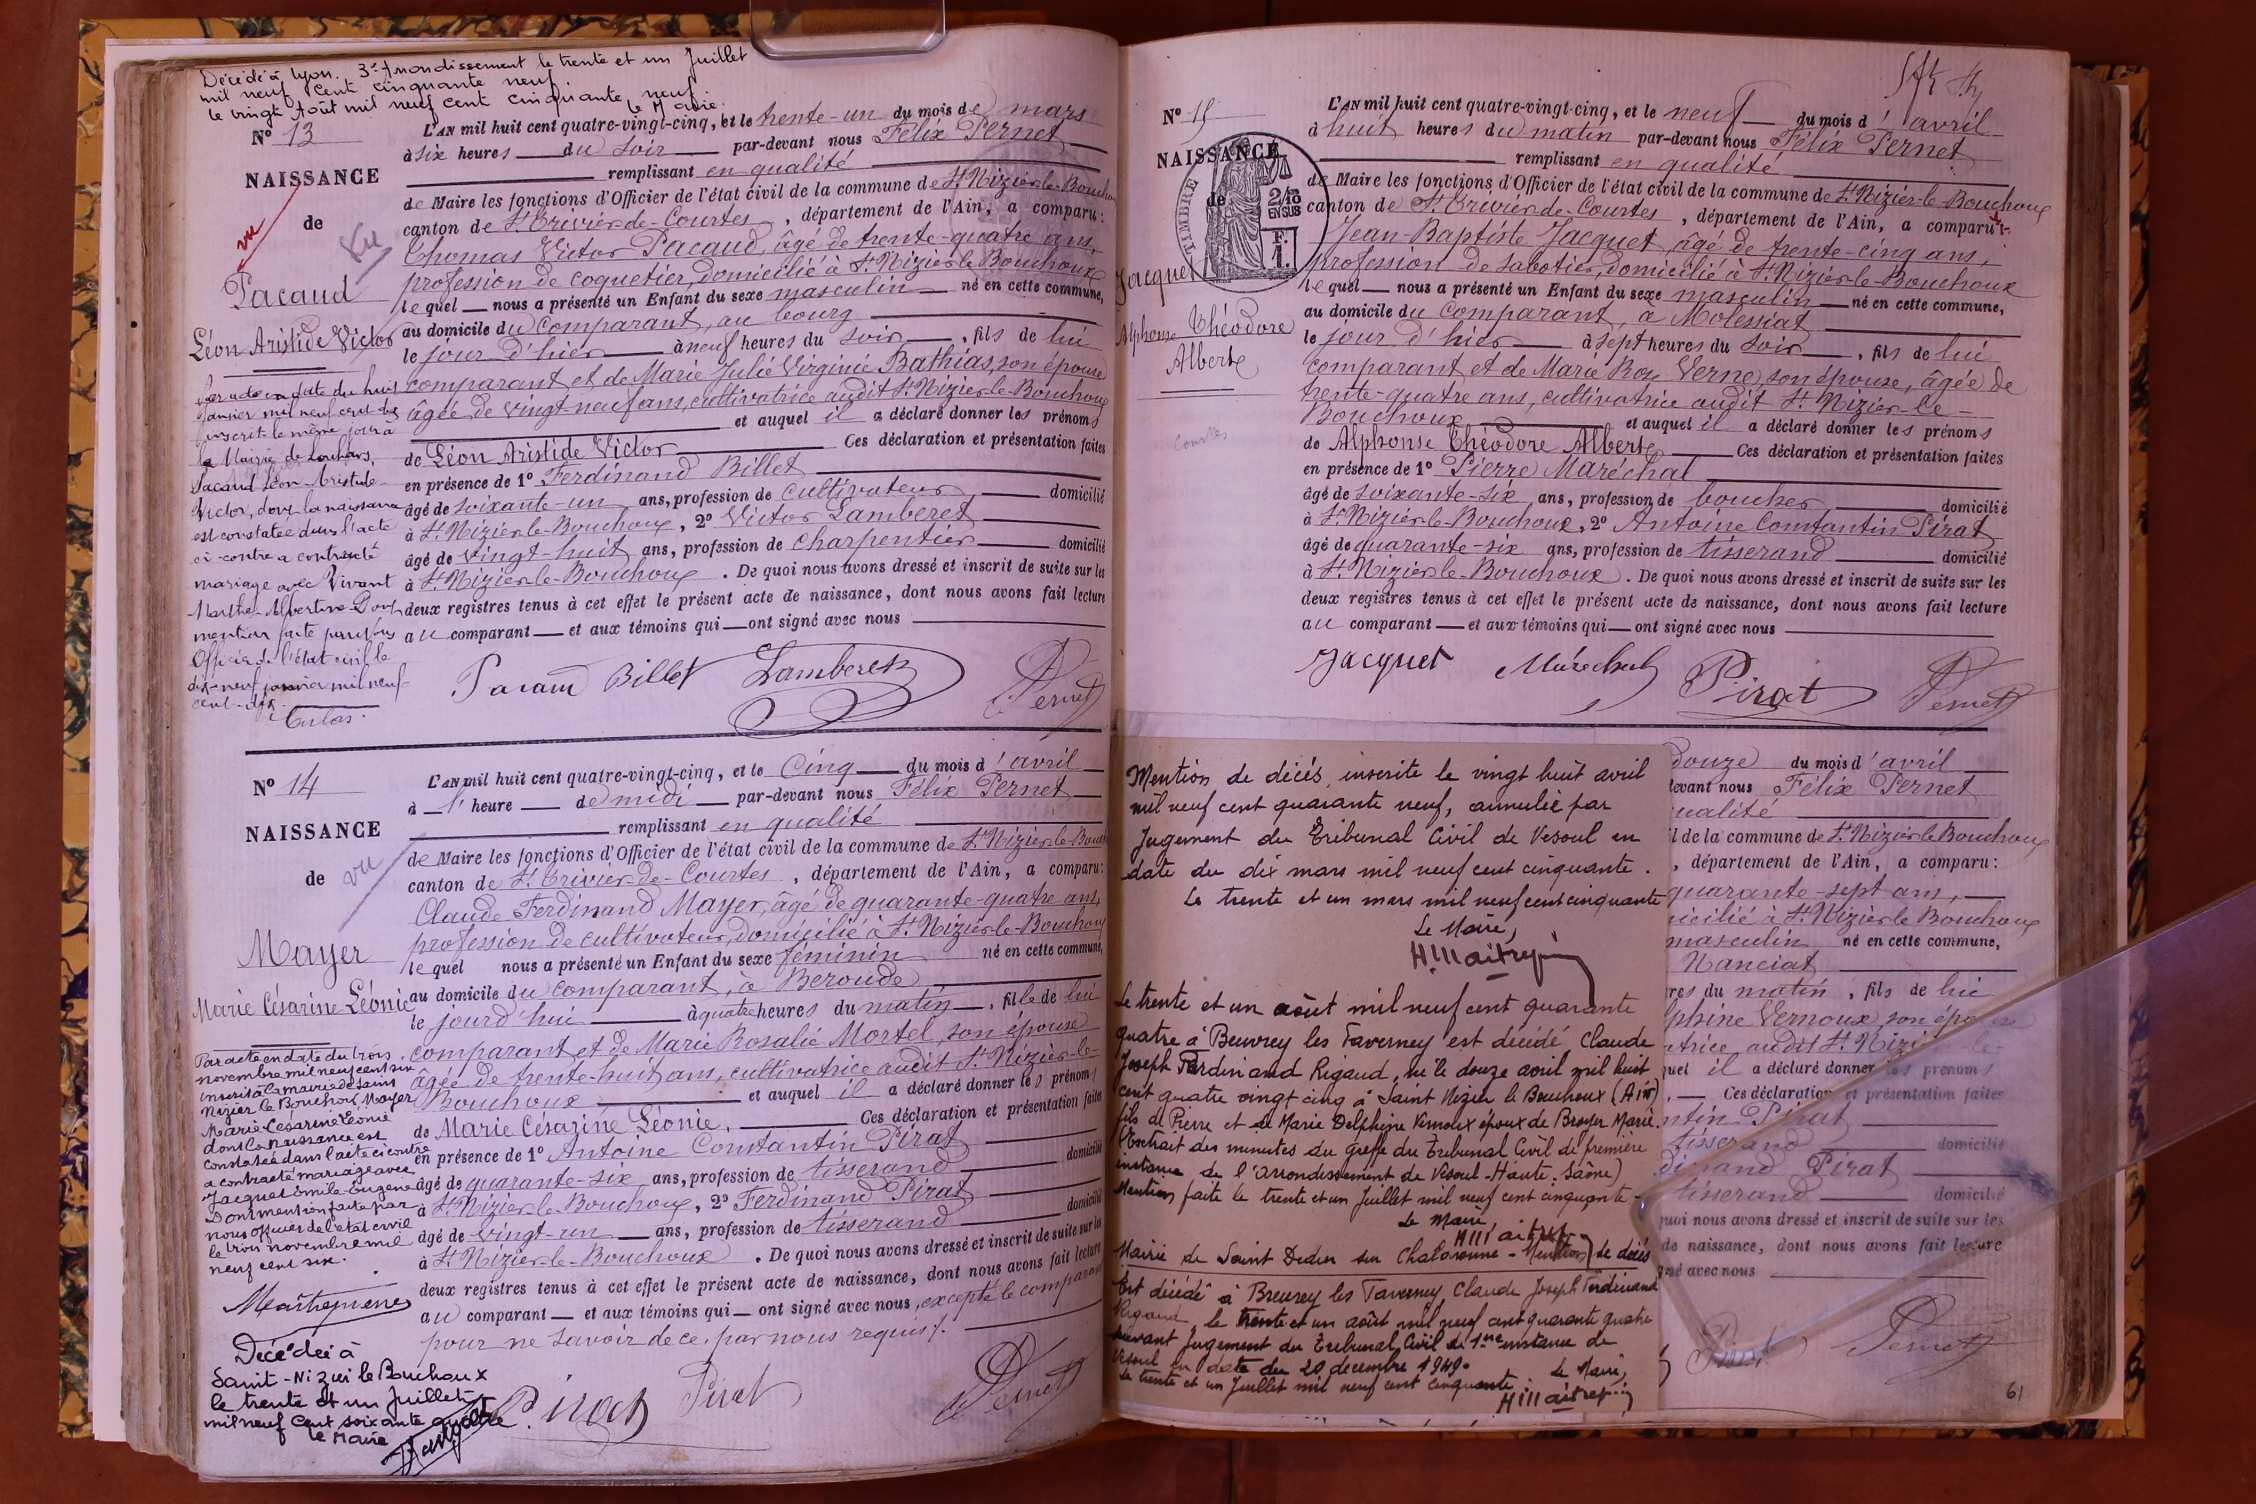 Décédé à Lyon. 3e Arrondissement le trente et un Juillet
mil neuf cent cinquante neuf.
le vingt Août mil neuf cent cinquante neuf
le Maire.
N° 13
NAISSANCE
de
vu
Vu
Pacaud
Léon Aristide Victor
Par acte en date du huit
janvier mil neuf cent dix
inscrit le même jour à
la Mairie de Louhans,
Pacaud Léon Aristide
Victor, dont la naissance
est constatée dans l'acte
ci-contre a contracté
mariage avec Vivant
Marthe-Albertine
mention faite par nous
Officier de l'état civil le
dix-neuf janvier mil neuf
cent-dix.
L'AN mil huit cent quatre-vingt-cinq, et le trente-un du mois de mars
à six heures du soir par-devant nous Félix Pernet
remplissant en qualité
de Maire les fonctions d'Officier de l'état civil de la commune de St Nizier-le-Bouchoux
canton de St Trivier-de-Courtes, département de l'Ain, a comparu:
Thomas Victor Pacaud, âgé de trente-quatre ans,
profession de coquetier, domicilié à St Nizier-le-Bouchoux
lequel nous a présenté un Enfant du sexe masculin né en cette commune,
au domicile du comparant, au bourg
le jour d'hier à neuf heures du soir, fils de lui
comparant et de Marie Julie Virginie Bathias, son épouse
âgée de vingt-neuf ans, cultivatrice audit St Nizier-le-Bouchoux
et auquel il a déclaré donner les prénoms
de Léon Aristide Victor Ces déclaration et présentation faites
en présence de 1° Ferdinand Billet
âgé de soixante-un ans, profession de cultivateur domicilié
à St Nizier-le-Bouchoux, 2° Victor Lamberet
âgé de vingt-huit ans, profession de charpentier domicilié
à St Nizier-le-Bouchoux. De quoi nous avons dressé et inscrit de suite sur les
deux registres tenus à cet effet le présent acte de naissance, dont nous avons fait lecture
au comparant et aux témoins qui ont signé avec nous
Pacaud Billet Lamberet Pernet
N° 14
NAISSANCE
de
vu
Mayer
Marie Césarine Léonie
Par acte en date du trois
novembre mil neuf cent six
inscrit à la mairie de Saint
Nizier le Bouchoux Mayer
Marie Césarine Léonie
dont la naissance est
constatée dans l'acte ci contre
a contracté mariage avec
Jacquet Emile Eugène
Dont mention faite par
nous officier de l'état civil
le trois novembre mil
neuf cent six.
Décédée à
Saint-Nizier le Bouchoux
le trente et un Juillet
mil neuf cent soixante quatre
le Maire
L'AN mil huit cent quatre-vingt-cinq, et le cinq du mois d'avril
à l'heure de midi par-devant nous Félix Pernet
remplissant en qualité
de Maire les fonctions d'Officier de l'état civil de la commune de St Nizier-le-Bouchoux
canton de St Trivier-de-Courtes, département de l'Ain, a comparu:
Claude Ferdinand Mayer, âgé de quarante-quatre ans,
profession de cultivateur, domicilié à St Nizier-le-Bouchoux
lequel nous a présenté un Enfant du sexe féminin né en cette commune,
au domicile du comparant, à Beroude
le jourd'hui à quatre heures du matin, fille de lui
comparant et de Marie Rosalie Mortel, son épouse
âgée de trente-huit ans, cultivatrice audit St Nizier-le-
Bouchoux et auquel il a déclaré donner les prénoms
de Marie Césarine Léonie. Ces déclaration et présentation faites
en présence de 1° Antoine Constantin Pirat
âgé de quarante-six ans, profession de tisserand domicilié
à St Nizier-le-Bouchoux, 2° Ferdinand Pirat
âgé de vingt-un ans, profession de tisserand domicilié
à St Nizier-le-Bouchoux. De quoi nous avons dressé et inscrit de suite sur les
deux registres tenus à cet effet le présent acte de naissance, dont nous avons fait lecture
au comparant et aux témoins qui ont signé avec nous, excepté le comparant
pour ne savoir de ce, par nous requis.
Pirat Pirat Pernet
N° 15
NAISSANCE
de
TIMBRE
2/10
EN SUS
F.
1.
Jacquet
Alphonse Théodore
Albert
Courtes
L'AN mil huit cent quatre-vingt-cinq, et le neuf du mois d'avril
à huit heures du matin par-devant nous Félix Pernet
remplissant en qualité
de Maire les fonctions d'Officier de l'état civil de la commune de St Nizier-le-Bouchoux
canton de St Trivier-de-Courtes, département de l'Ain, a comparu:
Jean-Baptiste Jacquet, âgé de trente-cinq ans,
profession de sabotier, domicilié à St Nizier-le-Bouchoux
lequel nous a présenté un Enfant du sexe masculin né en cette commune,
au domicile du comparant, à Molessiat
le jour d'hier à sept heures du soir, fils de lui
comparant et de Marie Rose Verne, son épouse, âgée de
trente-quatre ans, cultivatrice audit St Nizier-le-
Bouchoux et auquel il a déclaré donner les prénoms
de Alphonse Théodore Albert Ces déclaration et présentation faites
en présence de 1° Pierre Maréchal
âgé de soixante-six ans, profession de boucher domicilié
à St Nizier-le-Bouchoux, 2° Antoine Constantin Pirat
âgé de quarante-six ans, profession de tisserand domicilié
à St Nizier-le-Bouchoux. De quoi nous avons dressé et inscrit de suite sur les
deux registres tenus à cet effet le présent acte de naissance, dont nous avons fait lecture
au comparant et aux témoins qui ont signé avec nous
Jacquet Maréchal Pirat Pernet
Mention de décés inscrite le vingt huit avril
mil neuf cent quarante neuf, annulée par
Jugement du Tribunal Civil de Vesoul en
date du dix mars mil neuf cent cinquante.
Le trente et un mars mil neuf cent cinquante
Le Maire,
Le trente et un août mil neuf cent quarante
quatre à Breurey les Faverney est décédé Claude
Joseph Ferdinand Rigaud, né le douze avril mil huit
cent quatre vingt cinq à Saint Nizier le Bouchoux (Ain)
fils de Pierre et de Marie Delphine Vernoux époux de Broyer Marie.
(Extrait des minutes du greffe du Tribunal Civil de première
instance de l'arrondissement de Vesoul-Haute Saône)
Mention faite le trente et un Juillet mil neuf cent cinquante
Le Maire,
Mairie de Saint Didier sur Chalaronne - Mention de décès
Est décédé à Breurey les Faverney Claude Joseph Ferdinand
Rigaud, le trente et un août mil neuf cent quarante quatre
suivant Jugement du Tribunal Civil de 1ère instance de
Vesoul en date du 20 décembre 1949.
Le trente et un Juillet mil neuf cent cinquante. Le Maire,
douze du mois d'avril
devant nous Félix Pernet
qualité
l de la commune de St Nizier-le-Bouchoux
, département de l'Ain, a comparu:
quarante-sept ans,
icilié à St Nizier-le-Bouchoux
masculin né en cette commune,
Nanciat
res du matin, fils de lui
phine Vernoux, son épouse
atrice audit St Nizier-le-
quel il a déclaré donner les prénoms
Ces déclaration et présentation faites
ntin Pirat
tisserand domicilié
dinand Pirat
tisserand domicilié
quoi nous avons dressé et inscrit de suite sur les
de naissance, dont nous avons fait lecture
gné avec nous
Pirat Pernet
61